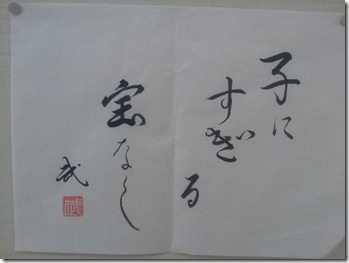 子に
すぎる
宝なし
武